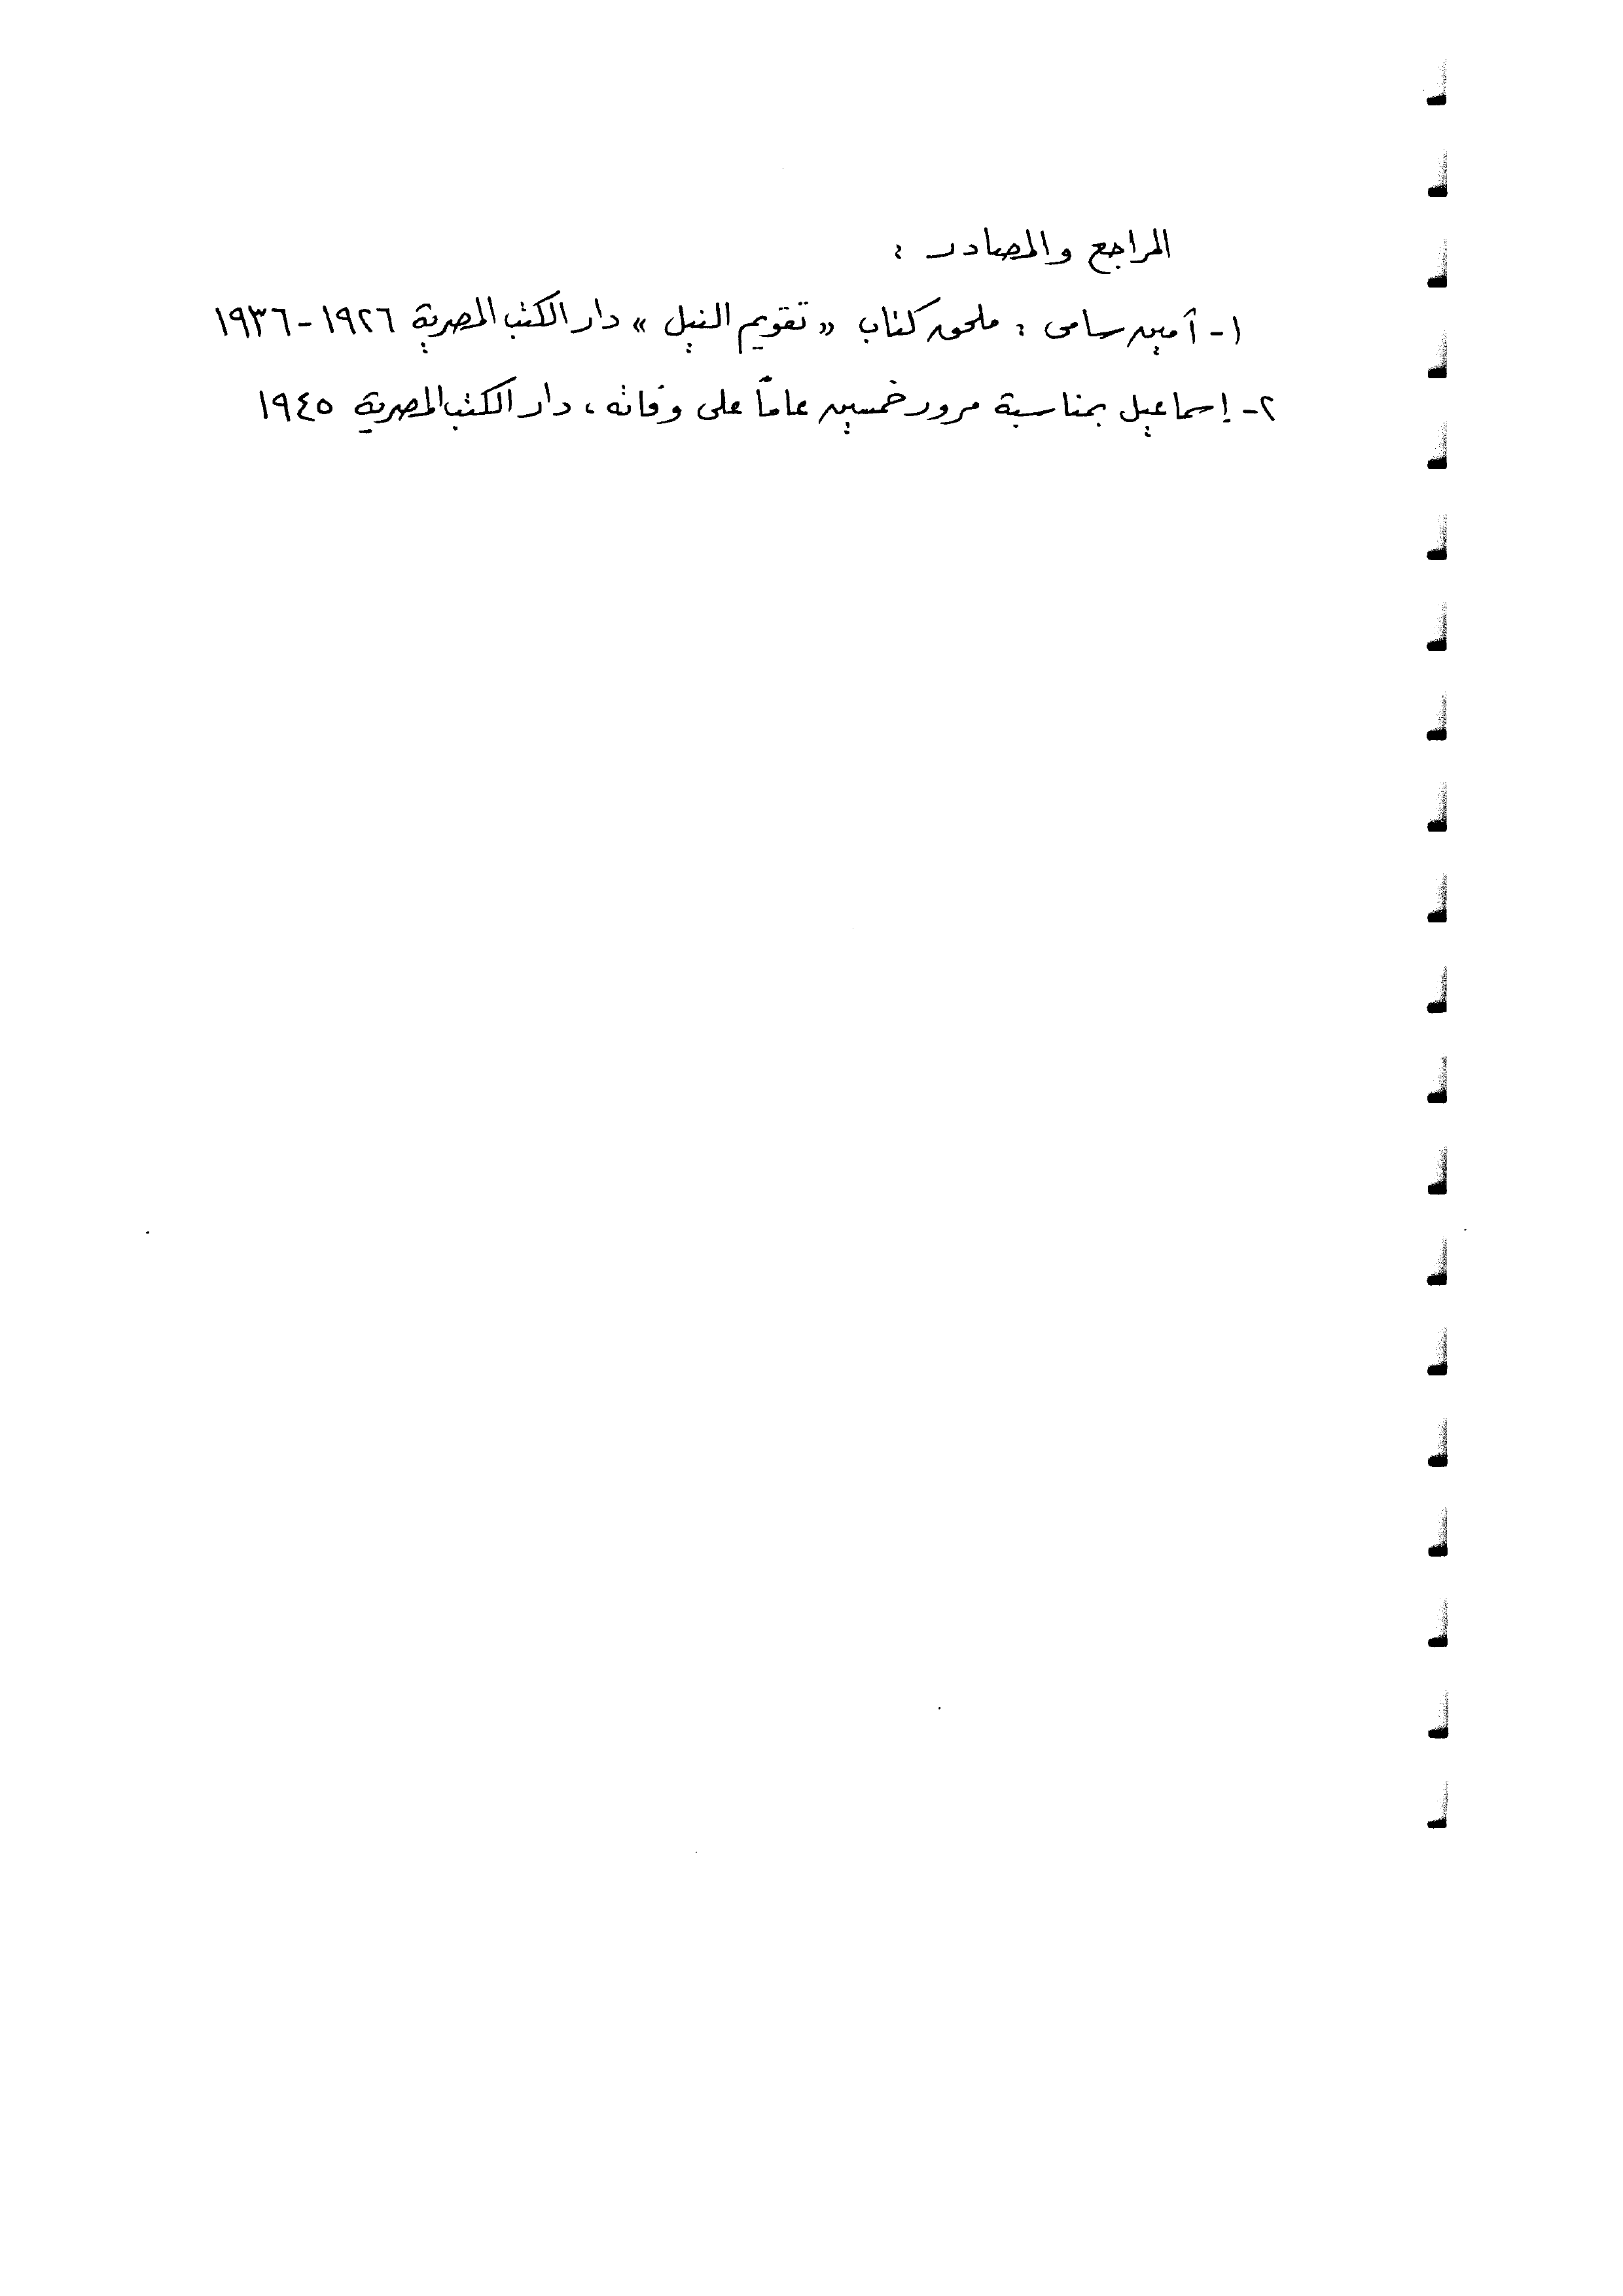 المراجع والمصادر :
١- أمين سامى : ملحق كتاب « تقويم النيل » دار الكتب المصرية ١٩٢٦ - ١٩٣٦
٢- إسماعيل بمناسبة مرور خمسين عاماً على وفاته ، دار الكتب المصرية ١٩٤٥